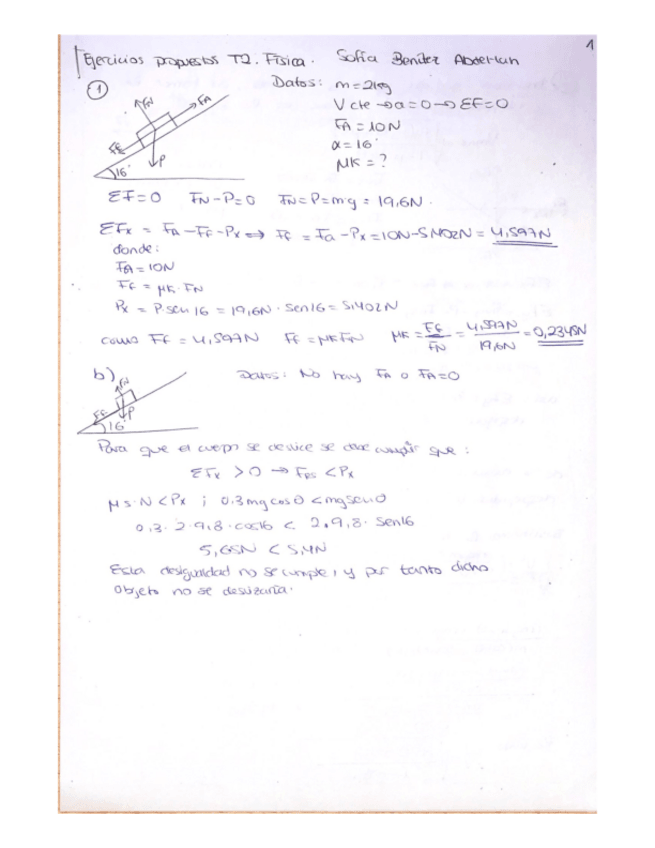 1
Ejercicios propuestos T2. Física. Sofía Benítez
① Datos: m=2kg
FN FA V cte → a=0 → ΣF=0
FA = 10N
FF P α = 16°
16° μK = ?
ΣF=0 FN-P=0 FN=P=mg = 19,6N.
ΣFx = FA-FF-Px ⟹ FF = Fa-Px=10N-5,402N = 4,597N
donde:
FA=10N
FF = μK·FN
Px = P·sen 16 = 19,6N·sen16 = 5,402N
como FF = 4,597N FF = μK FN μK = FF/FN = 4,597N/19,6N = 0,2345N
b) Datos: No hay FA o FA=0
FN
FF P
16°
Para que el cuerpo se deslice se debe cumplir que:
ΣFx > 0 → FRS < Px
μs·N < Px ; 0.3mg cosθ < mg senθ
0,3·2·9,8·cos16 < 2·9,8·sen16
5,65N < 5,4N
Esta desigualdad no se cumple, y por tanto dicho
objeto no se deslizaría.